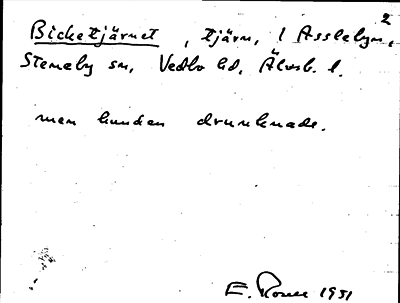 2
Bicketjärnet, tjärn, i Asslebyn,
Steneby sn, Vedbo hd, Älvsb. l.
men hunden drunknade.
E. 1931